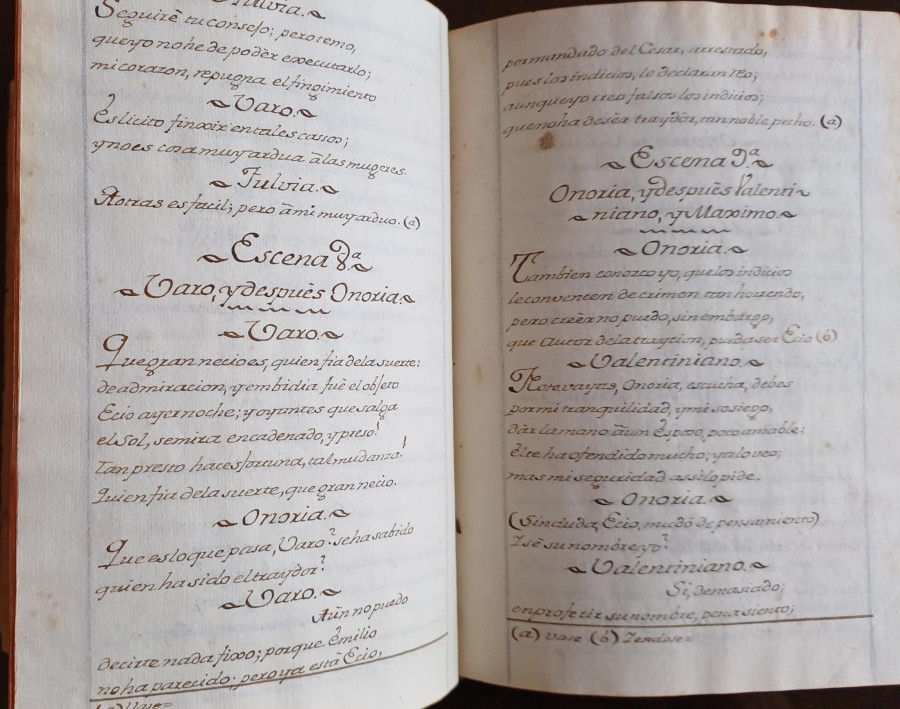 Fulvia.
Seguirè tu consejo; pero temo,
que yo no he de podèr executarlo;
mi corazon, repugna el fingimiento
Varo.
Es licito finxir en tales cassos;
y no es cosa muy ardua à las mugeres.
Fulvia.
A otras es facil; pero à mi muy arduo. (a)
Escena 8.ª
Varo, y despuès Onoria.
Varo.
Que gran necio es, quien fia de la suerte:
de admiracion, y embidia fuè el objeto
Ecio ayer noche; y oy antes que salga
el Sol, se mira encadenado, y preso!
Tan presto haces fortuna, tal mudanza!
Quien fia de la suerte, que gran necio.
Onoria.
Que es lo que pasa, Varo? se ha sabido
quien ha sido el traydor?
Varo.
Aùn no puedo
decirte nada fixo; porque Emilio
no ha parecido; pero ya està Ecio,
(a) Vase=
por mandado del Cesar, arrestado,
pues los indicios, le declaran reo;
aunque yo creo falsos los indicios;
que no ha de sèr traydòr, tan noble pecho. (a)
Escena 9.ª
Onoria, y despuès Valenti-
niano, y Maximo.
Onoria.
Tambien conozco yo, que los indicios
le conventen de crimen tan horrendo,
pero creèr no puedo, sin embargo,
que Autor de la traycion, pueda ser Ecio (b)
Valentiniano.
No te vayas, Onoria, escucha, debes
por mi tranquilidad, y mi sosiego,
dàr la mano à un Esposo, poco amable:
èl te ha ofendido mucho; ya lo veo;
mas mi seguridad assi lo pide.
Onoria.
(Sin duda, Ecio, mudò de pensamiento)
I sè su nombre yo?
Valentiniano.
Si, demasiado;
en proferir su nombre, pena siento;
(a) vase (b) Iendose=